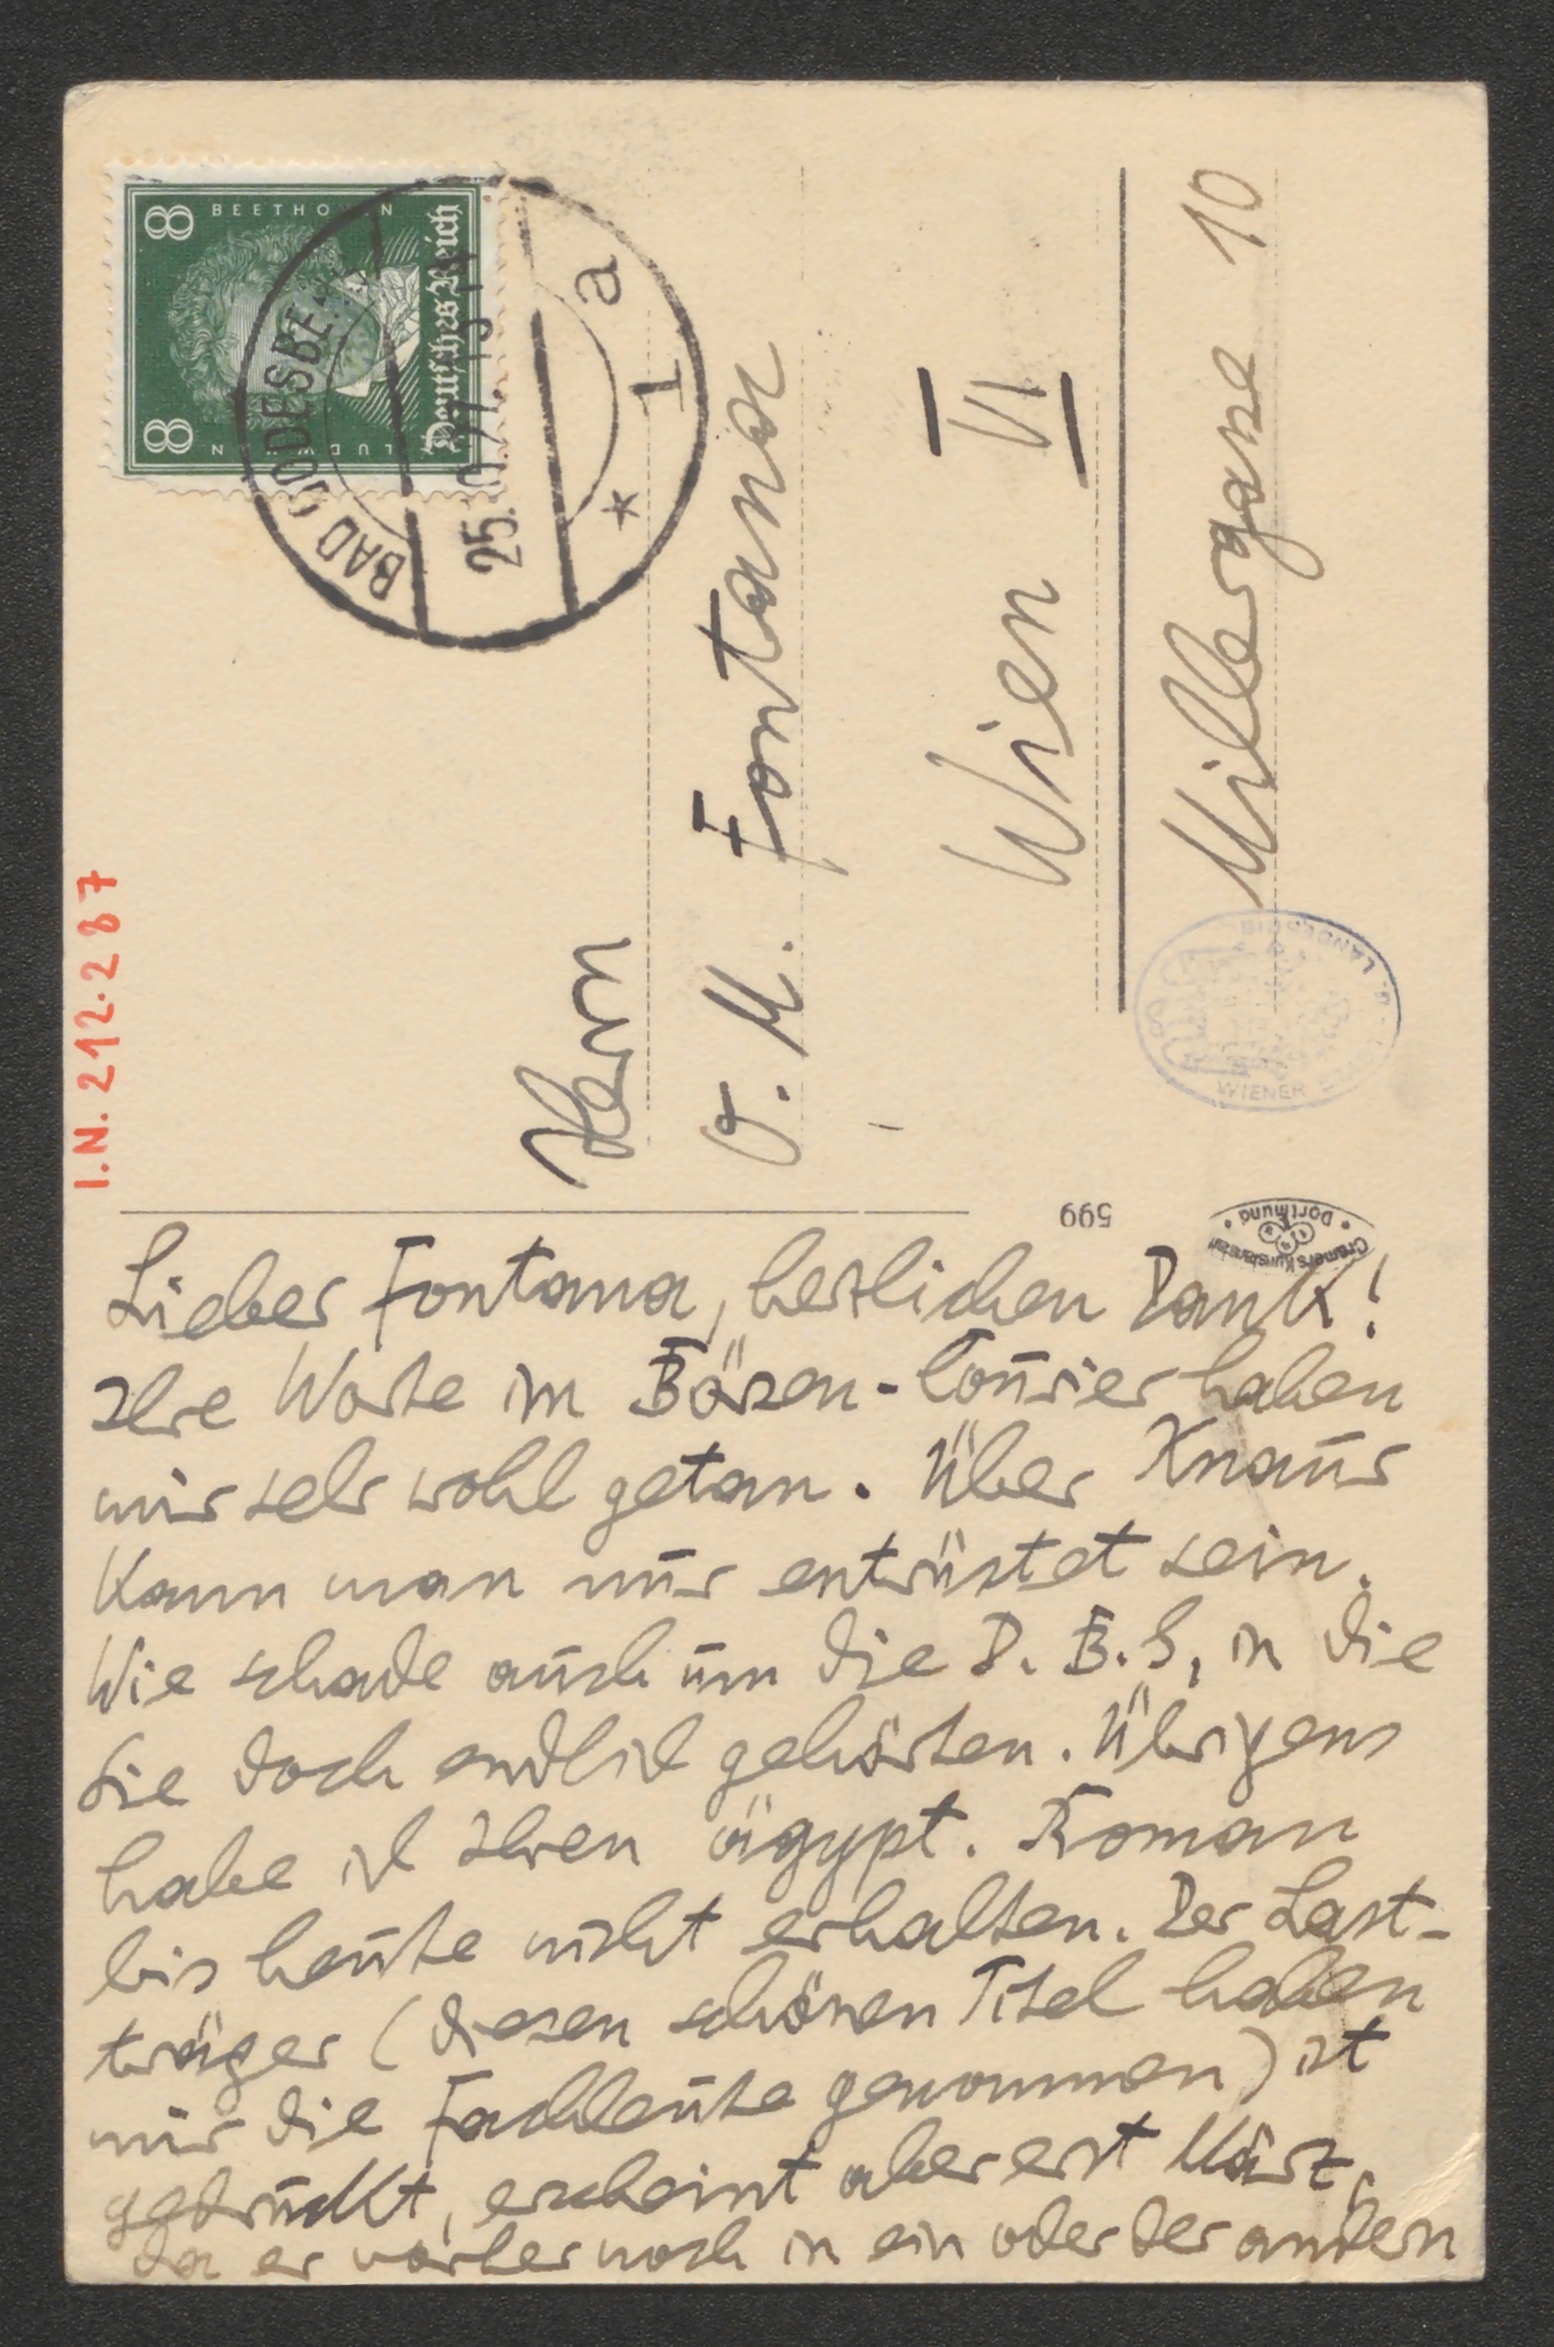 I.N. 212.287
8 BEETHOVEN
8 LUDWIG VAN
Deutsches Reich
BAD GODESBERG
25.
* 1 a
Herrn
O. M. Fontana
Wien VI
Millergasse 10
WIENER
LANDESBIB
599
Cramers Kunstanstalt
• Dortmund •
Lieber Fontana, herzlichen Dank!
Ihre Worte im Börsen-Courier haben
mir sehr wohl getan. Über Knaur
kann man nur entrüstet sein.
Wie schade auch um die D. B. G, in die
Sie doch endlich gehörten. Übrigens
habe ich Ihren ägypt. Roman
bis heute nicht erhalten. Der Last-
träger (diesen schönen Titel haben
mir die Fachleute genommen) ist
gedruckt, erscheint aber erst März,
da er vorher noch in ein oder der andern